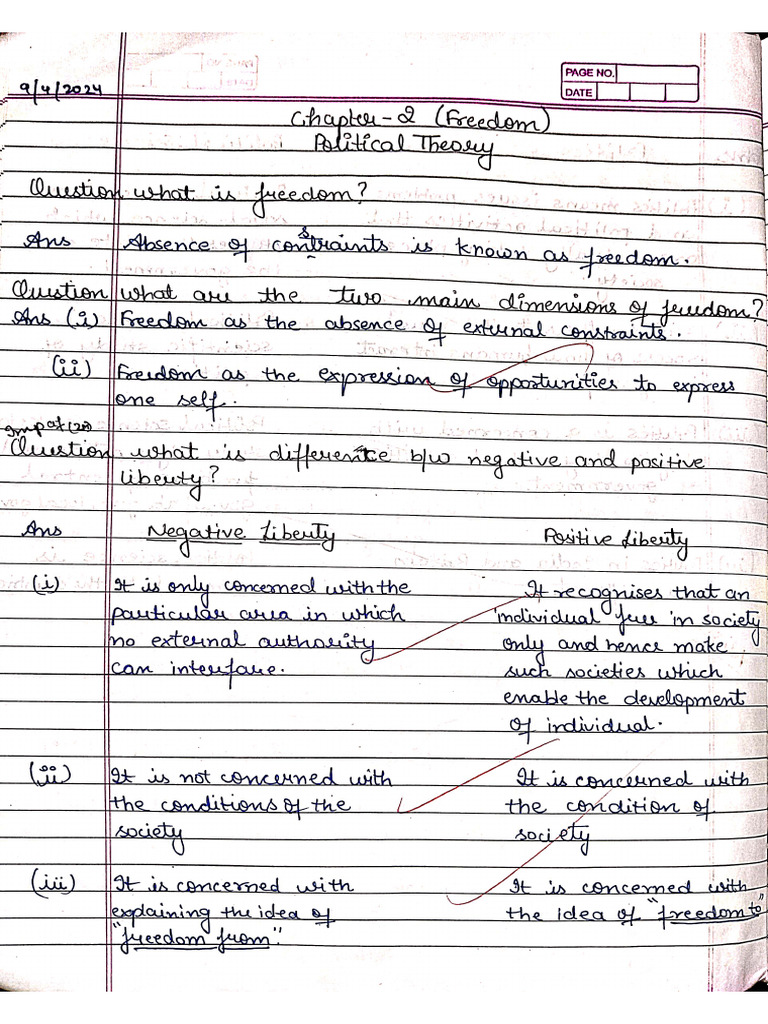 PAGE NO.
DATE
9/4/2024
Chapter-2 (Freedom)
Political Theory
Question what is freedom?
Ans Absence of constraints is known as freedom.
Question what are the two main dimensions of freedom?
Ans (i) Freedom as the absence of external constraints.
(ii) Freedom as the expression of opportunities to express
one self.
Question what is difference b/w negative and positive
liberty?
Ans Negative Liberty Positive Liberty
(i) It is only concerned with the It recognises that an
particular area in which individual free in society
no external authority only and hence make
can interfare. such societies which
enable the development
of individual.
(ii) It is not concerned with It is concerned with
the conditions of the the condition of
society society
(iii) It is concerned with It is concerned with
explaining the idea of the idea of "freedom to"
"freedom from".